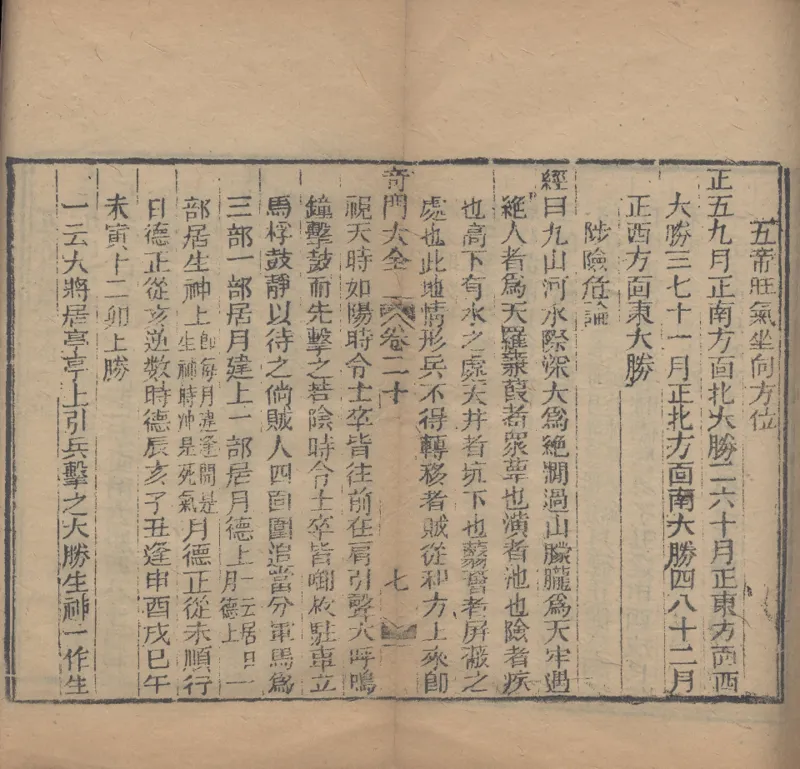 五帝旺氣坐向方位
正五九月正南方面北大勝二六十月正東方面西
大勝三七十一月正北方面南大勝四八十二月
正西方面東大勝
陟險危論
經曰九山河水際深大爲絶澗過山朦朧爲天牢遇
絶人者爲天羅蒹葭者衆草也潢者池也陰者疾
也高下有水之處天井者坑下也蘙薈者屏蔽之
處也此地情形兵不得轉移者賊從和方上來卽
奇門大全 卷二十 七
視天時如陽時令士卒皆往前在肩引聲大呼鳴
鐘擊鼓而先擊之若陰時令士卒皆啣枚駐車立
馬桴鼓靜以待之倘賊人四面圍追當分軍馬爲
三部一部居月建上一部居月德上一云居日德上一
部居生神上卽每月建逢開是生神時冲是死氣月德正從未順行
日德正從亥逆數時德辰亥子丑逢申酉戌巳午
未寅十二卯上勝
一云大將居亭亭上引兵擊之大勝生神一作生